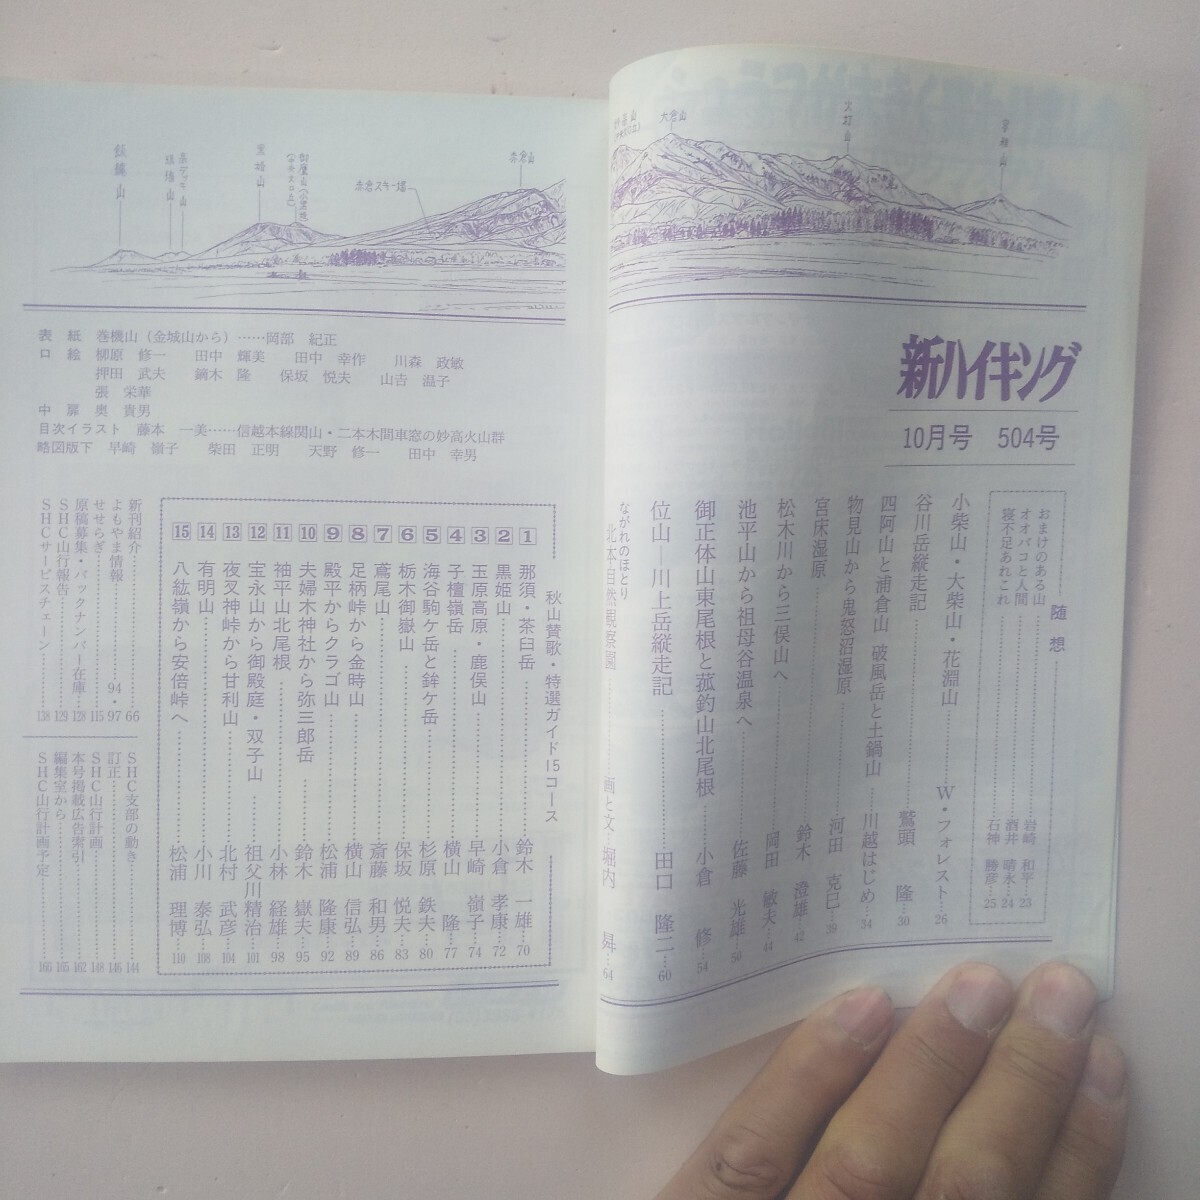 六倉山
赤倉山
赤倉スキー場
黒姫山
飯縄山
新ハイキング
10月号 504号
随想
おまけのある山……岩崎 和平…23
オオバコと人間……酒井 晴水…24
寝不足あれこれ……石神 勝彦…25
小柴山・大柴山・花淵山……W・フォレスト…26
谷川岳縦走記……鷲頭 隆…30
四阿山と浦倉山 破風岳と土鍋山……川越はじめ…34
物見山から鬼怒沼湿原……河田 克巳…39
宮床湿原……鈴木 澄雄…42
松木川から三俣山へ……岡田 敏夫…44
池平山から祖母谷温泉へ……佐藤 光雄…50
御正体山東尾根と菰釣山北尾根……小倉 修…54
位山―川上岳縦走記……田口 隆二…60
ながれのほとり
北本自然観察園……画と文・堀内 曻…64
表紙 巻機山(金城山から)……岡部 紀正
口絵 柳原 修一 田中 輝美 田中 幸作 川森 政敏
押田 武夫 鏑木 隆 保坂 悦夫 山𠮷 温子
張 栄華
中扉 奥 貴男
目次イラスト 藤本 一美……信越本線関山・二本木間車窓の妙高火山群
略図版下 早崎 嶺子 柴田 正明 天野 修一 田中 幸男
秋山賛歌・特選ガイド15コース
1 那須・茶臼岳……鈴木 一雄…70
2 黒姫山……小倉 孝康…72
3 玉原高原・鹿俣山……早崎 嶺子…74
4 子檀嶺岳……横山 隆…77
5 海谷駒ケ岳と鉾ケ岳……杉原 鉄夫…80
6 栃木御嶽山……保坂 悦夫…83
7 鳶尾山……斎藤 和男…86
8 足柄峠から金時山……横山 信弘…89
9 殿平からクラゴ山……松浦 隆康…92
10 夫婦木神社から弥三郎岳……鈴木 嶽夫…95
11 袖平山北尾根……小林 経雄…98
12 宝永山から御殿庭・双子山……祖父川精治…101
13 夜叉神峠から甘利山……北村 武彦…104
14 有明山……小川 泰弘…108
15 八紘嶺から安倍峠へ……松浦 理博…110
新刊紹介……66
よもやま情報……94・97
せせらぎ……115
原稿募集・バックナンバー在庫…128
SHC山行報告……129
SHCサービスチェーン……138
SHC支部の動き……144
訂正……146
SHC山行計画……148
本号掲載広告索引……162
編集室から……165
SHC山行計画予定……166